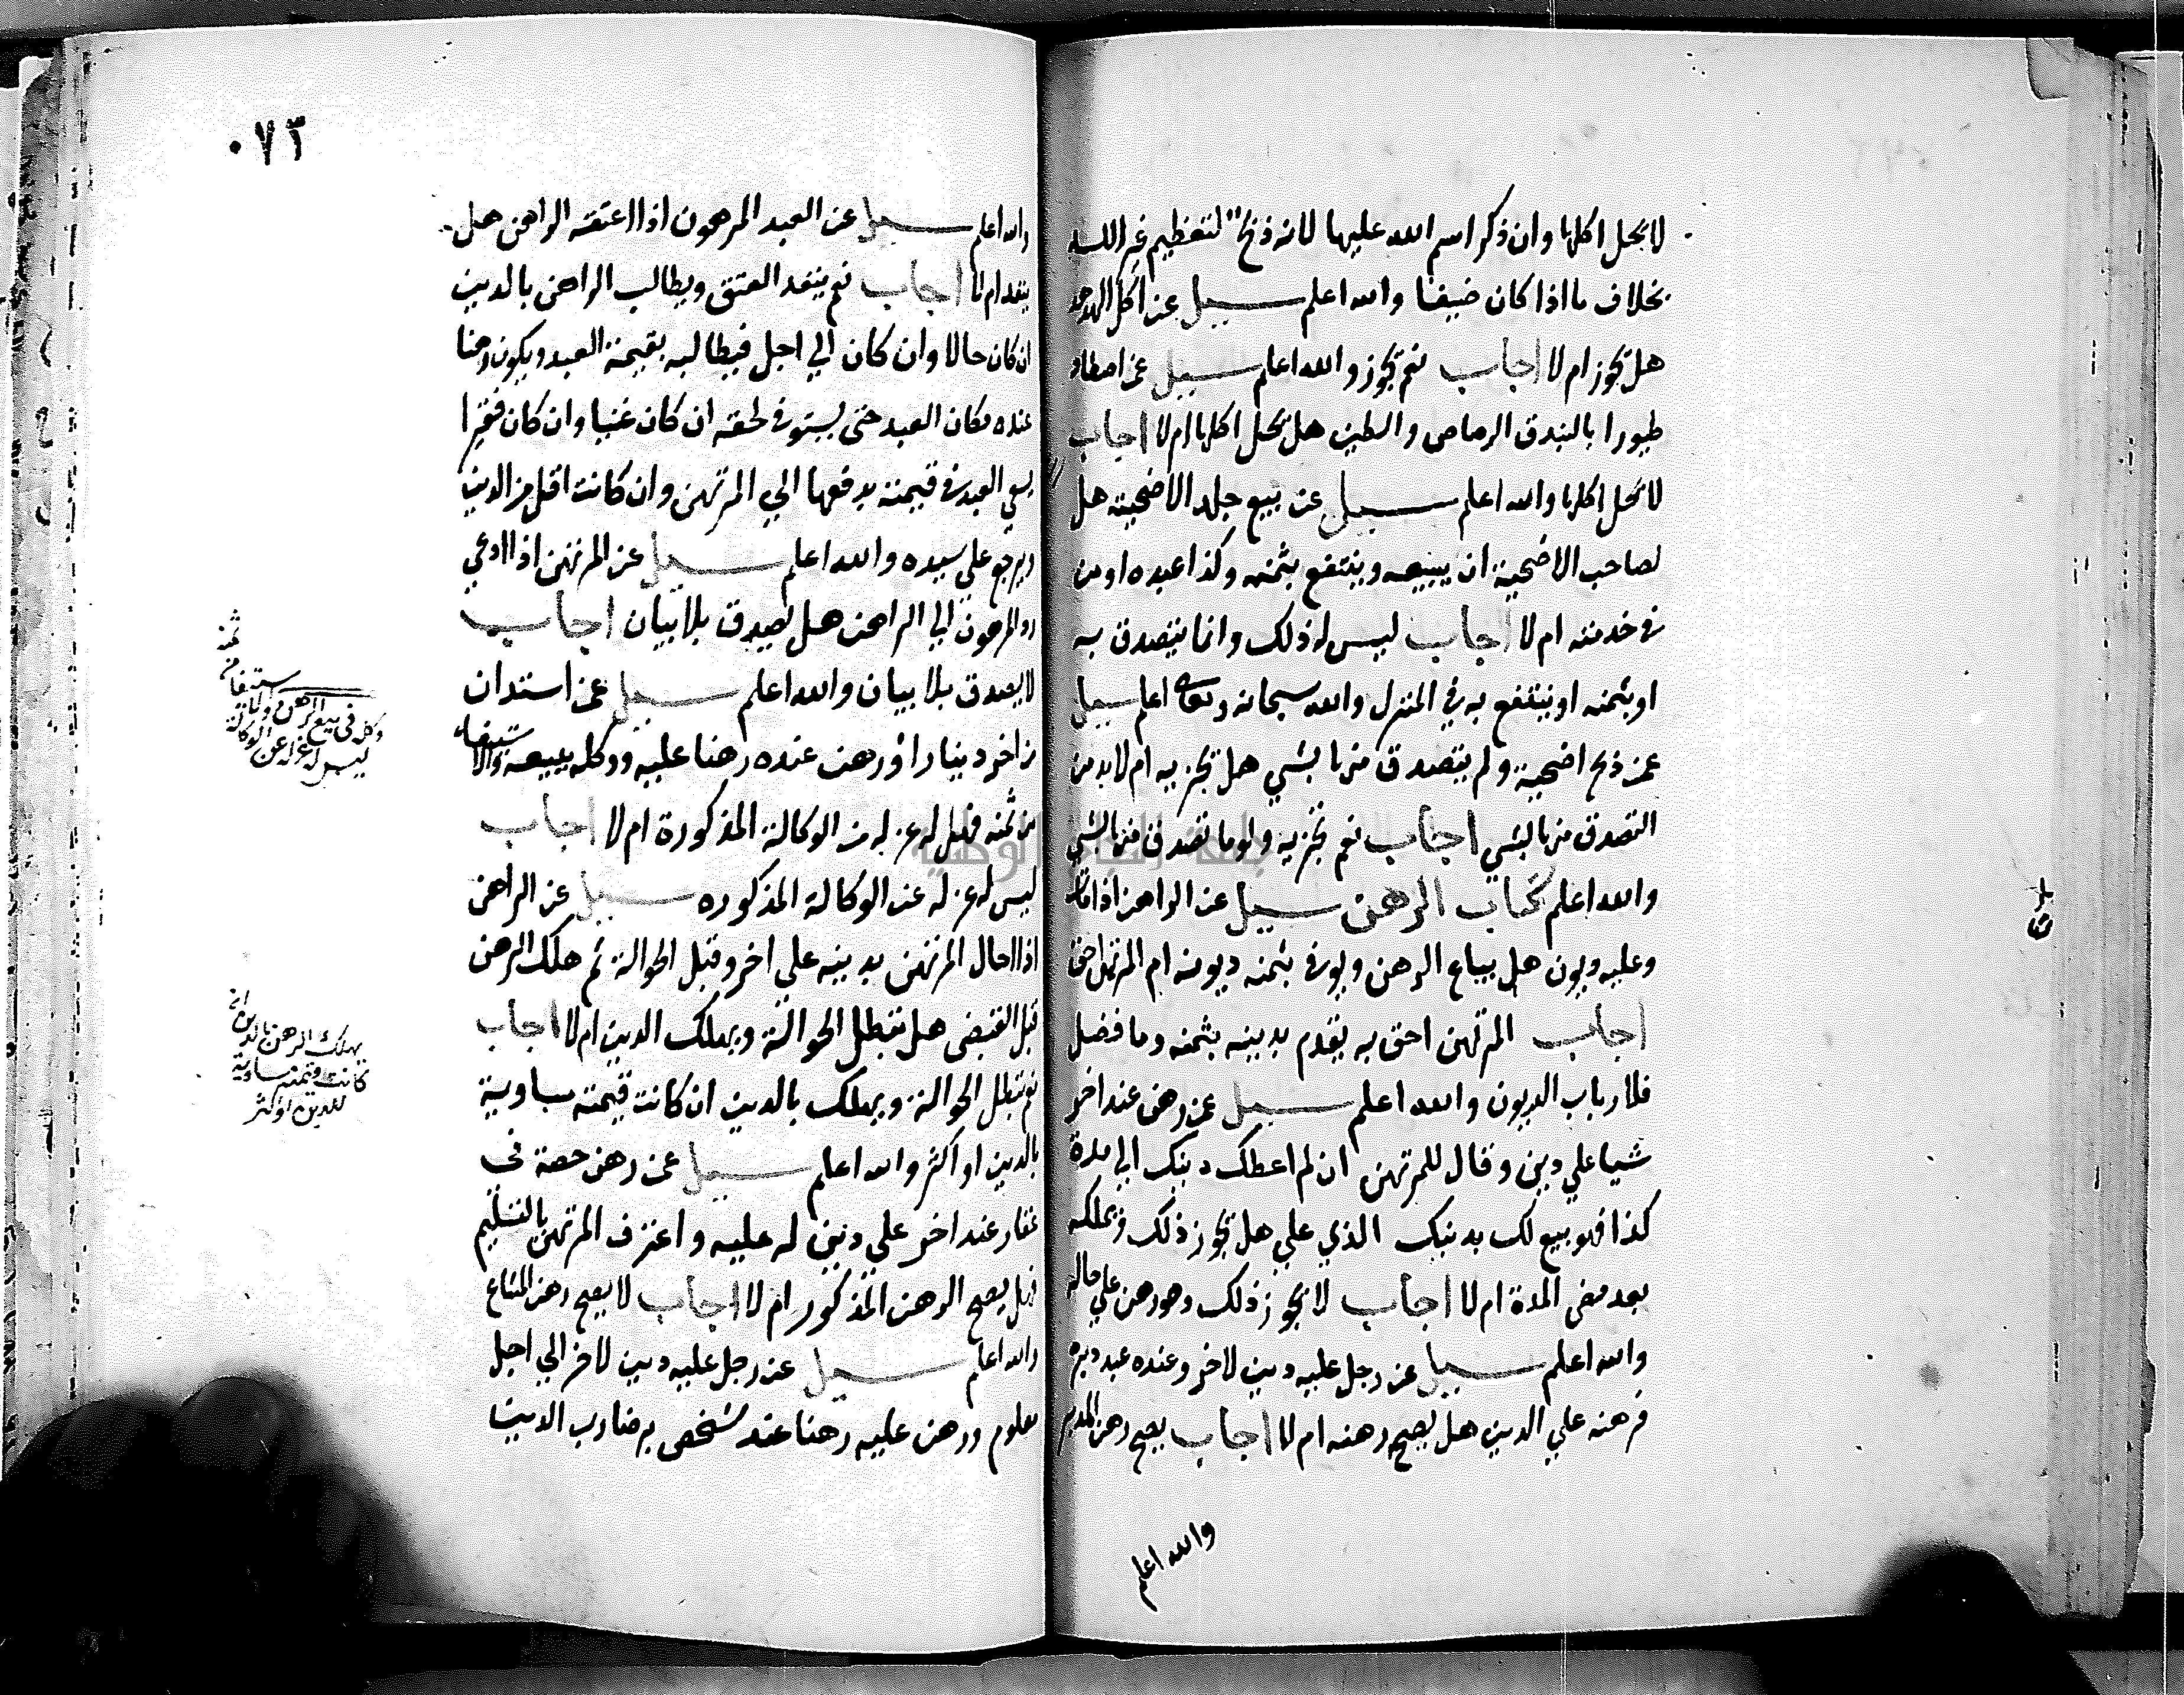 لا يحل اكلها وان ذكر اسم الله عليها لانه ذبح لتعظيم غير الله
بخلاف ما اذا كان ضيفا والله اعلم سيل عن اكل الهدهد
هل يجوز ام لا اجاب نعم يجوز والله اعلم سيل عمن اصطاد
طيورا بالبندق الرصاص والطين هل يحل اكلها ام لا اجاب
لا يحل اكلها والله اعلم سيل عن بيع جلد الاضحية هل
لصاحب الاضحية ان يبيعه وينتفع بثمنه وكذا عبده او من
في خدمته ام لا اجاب ليس له ذلك وانما يتصدق به
او بثمنه او ينتفع به في المنزل والله سبحانه وتعالى اعلم سيل
عمن ذبح اضحية ولم يتصدق منها بشي هل تجزيه ام لا بد من
التصدق منها بشي اجاب نعم تجزيه ولو ما تصدق منها بشي
والله اعلم كتاب الرهن سيل عن الراهن اذا مات
وعليه ديون هل يباع الرهن ويوفي بثمنه ديونه ام المرتهن احق
اجاب المرتهن احق به يقدم بدينه بثمنه وما فضل
فلارباب الديون والله اعلم سيل عمن رهن عند اخر
شيا علي دين وقال للمرتهن ان لم اعطك دينك الي مدة
كذا فهو بيع لك بدينك الذي علي هل يجوز ذلك ويملكه
بعد مضي المدة ام لا اجاب لا يجوز ذلك وهو رهن علي حاله
والله اعلم سيل عن رجل عليه دين لاخر وعنده عبد دبره
فرهنه علي الدين هل يصح رهنه ام لا اجاب يصح رهن المدبر
والله اعلم
٠٧٣
والله اعلم سيل عن العبد المرهون اذا اعتقه الراهن هل
ينفد ام لا اجاب نعم ينفد العتق ويطالب الراهن بالدين
ان كان حالا وان كان الي اجل فيطالبه بقيمة العبد ويكون رهنا
عنده مكان العبد حتي يستوفي حقه ان كان غنيا وان كان فقيرا
يسعي العبد في قيمته يدفعها الي المرتهن وان كانت اقل من الدين
ويرجع علي سيده والله اعلم سيل عن المرتهن اذا ادعي
رد المرهون الي الراهن هل يصدق بلا بيان اجاب
لا يصدق بلا بيان والله اعلم سيل عمن استدان
من اخر دينارا ورهن عنده رهنا عليه ووكله ببيعه والاستيفاء
من ثمنه فهل له عزله من الوكالة المذكورة ام لا اجاب
ليس له عزله عن الوكالة المذكوره سيل عن الراهن
اذا احال المرتهن بدينه علي اخر وقبل الحوالة ثم هلك الرهن
قبل القبض هل تبطل الحوالة ويهلك الدين ام لا اجاب
نعم تبطل الحوالة ويهلك بالدين ان كانت قيمته مساوية
بالدين او اكثر والله اعلم سيل عمن رهن حصة في
عقار عند اخر علي دين له عليه واعترف المرتهن بالتسليم
فهل يصح الرهن المذكور ام لا اجاب لا يصح رهن المشاع
والله اعلم سيل عن رجل عليه دين لاخر الي اجل
معلوم ورهن عليه رهنا عند شخص برضا رب الدين
وكله في بيع الرهن والاستيفا من ثمنه
ليس له عزله عن الوكالة
يهلك الرهن بالدين ان
كانت قيمته مساوية
للدين او اكثر